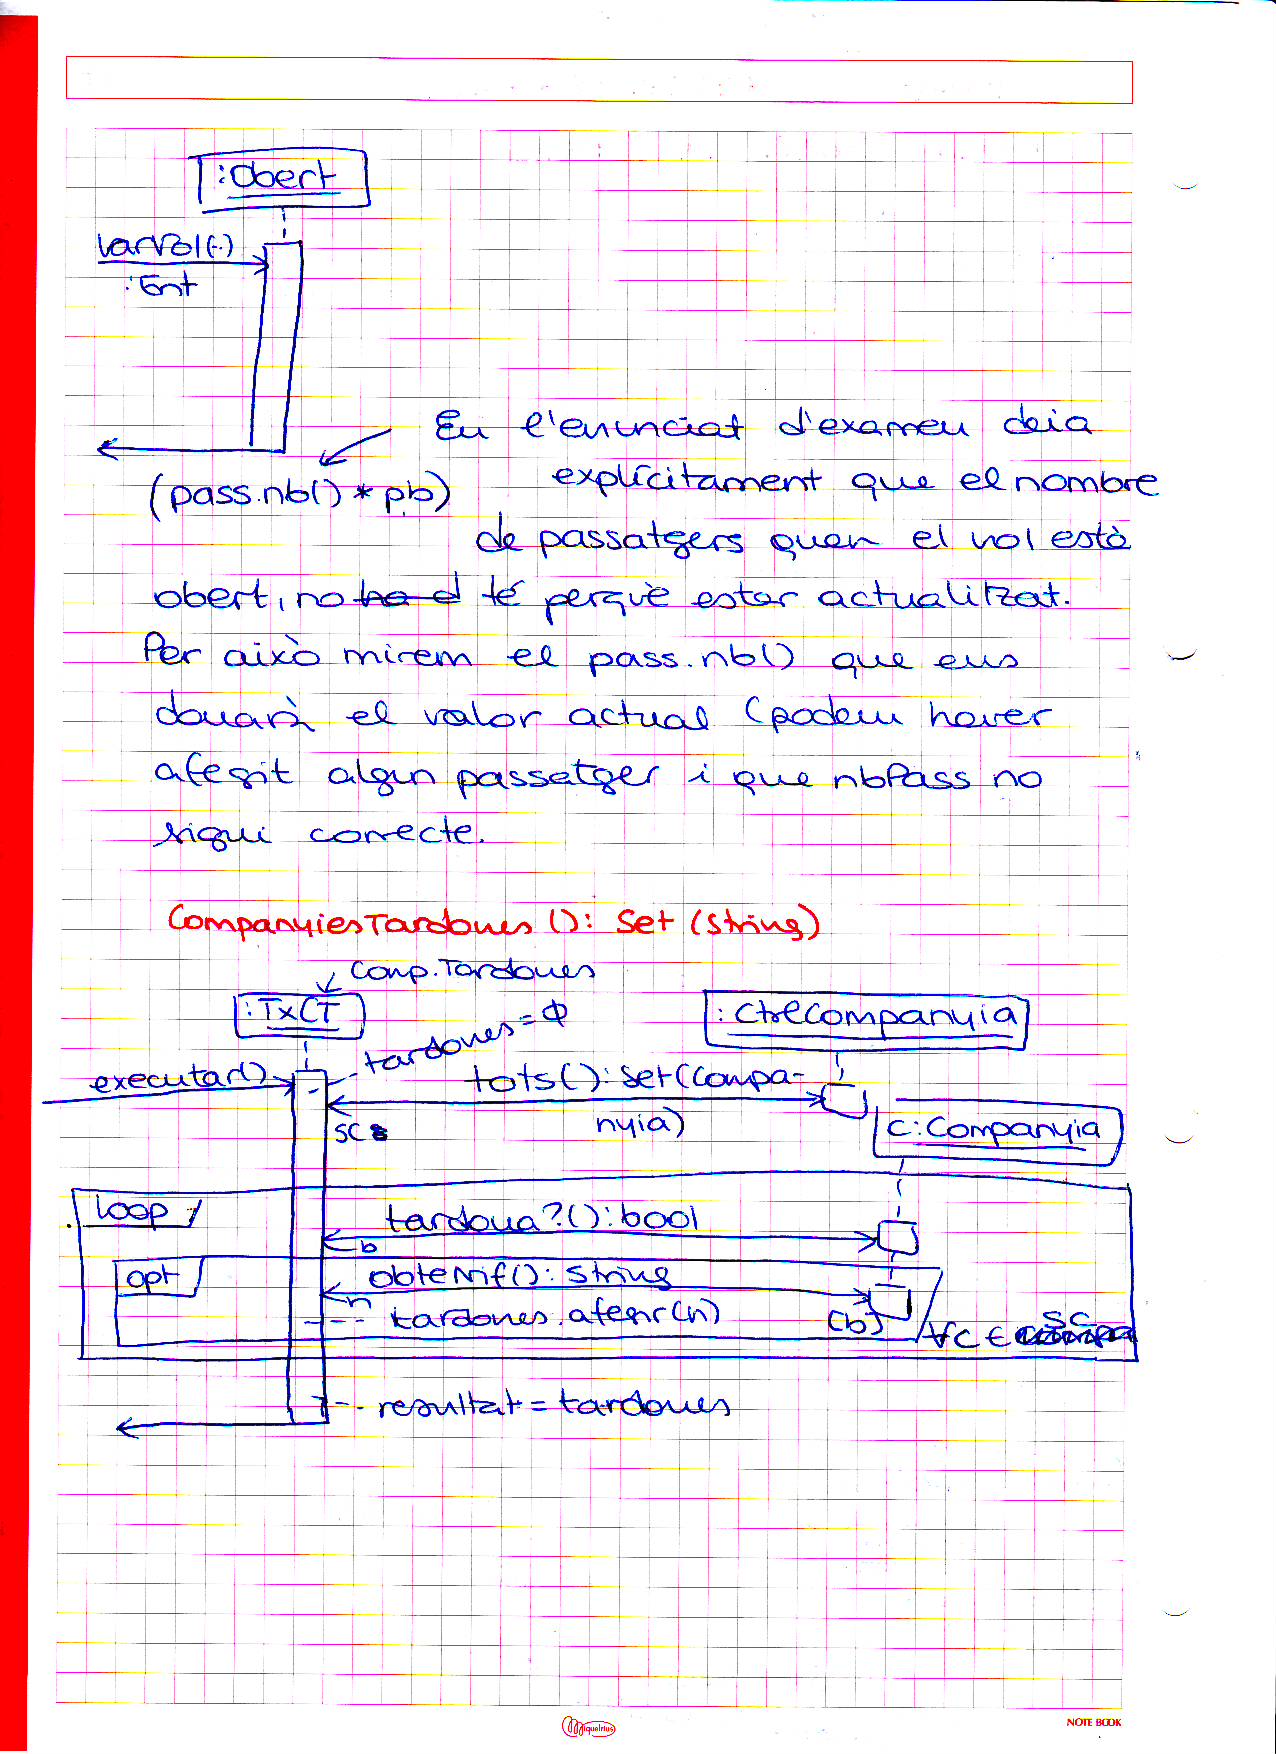 :Obert
:Ent
En l'enunciat d'examen deia
explícitament que el nombre
(pass.nb() * pb)
de passatgers quan el vol està
obert, no té perquè estar actualitzat.
Per això mirem el pass.nb() que ens
donarà el valor actual (podem haver
afegit algun passatger i que nbPass no
sigui correcte.
CompanyiesTardones(): Set(String)
Comp.Tardones
:TxCT
:CtrlCompanyia
tardones = Φ
executar()
tots(): Set(Compa-
nyia)
sc
c:Companyia
loop
tardona?(): bool
b
opt
obteNif(): String
n
tardones.afegir(n)
[b]
∀c ∈ sc
resultat = tardones
Miquelrius
NOTE BOOK